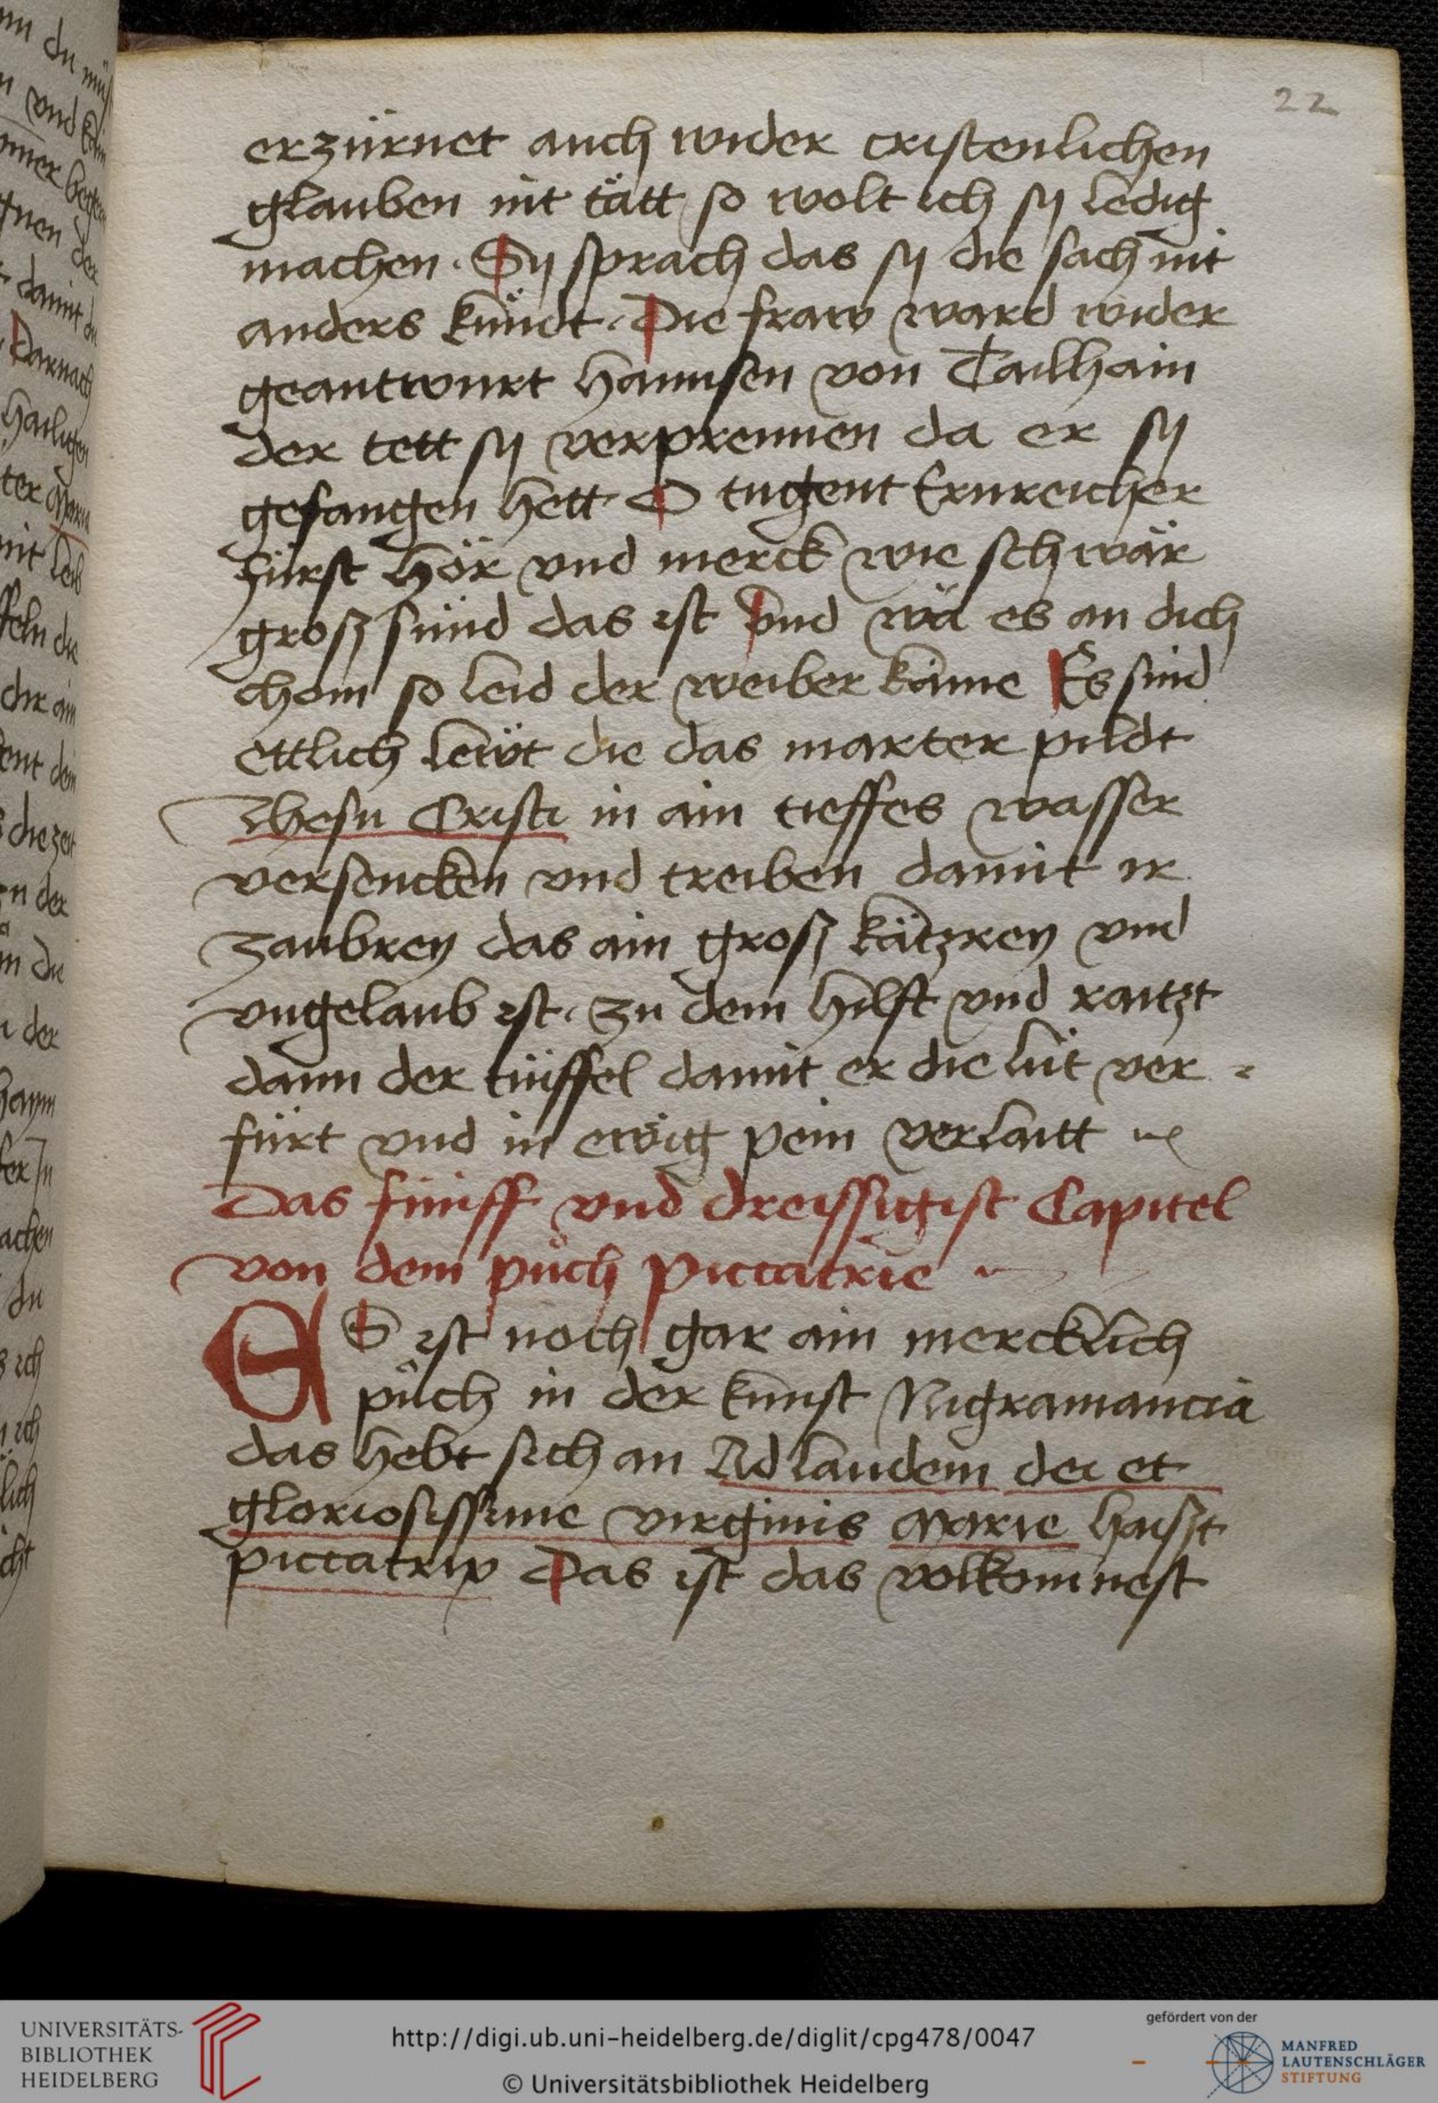 22
erzürnet auch wider cristenlichen
glauben nit tätt so wolt ich sy ledig
machen. Sy sprach das sy die sach nit
anders kündt. Die fraw ward wider
geantwurt hannsen von Tailhain
der tett sy verprennen da er sy
gefangen hett. O tugent Ernreicher
fürst hör vnd merck wie schwär
grosz sünd das ist vnd wä es an dich
chom so leid der weiber kaine Es sind
ettlich lewt die das marter pildt
Jhesu Cristi in ain tieffes wasser
versencken vnd treiben damit ir
zaubrey das ain grosz kätzrey vnd
vngelaub ist. zu dem hilft vnd raitzt
dann der tüffel damit er die lüt ver
fürt vnd in ewig pein verlaitt
Das fünff vnd dreissigist Capitel
von dem püch piccatrie
ES ist noch gar ain mercklich
püch in der kunst Nigramancia
das hebt sich an Ad laudem dei et
gloriosissime virginis Marie haiszt
piccatrix Das ist das volkomnest
UNIVERSITÄTS-
BIBLIOTHEK
HEIDELBERG
http://digi.ub.uni-heidelberg.de/diglit/cpg478/0047
© Universitätsbibliothek Heidelberg
gefördert von der
MANFRED
LAUTENSCHLÄGER
STIFTUNG